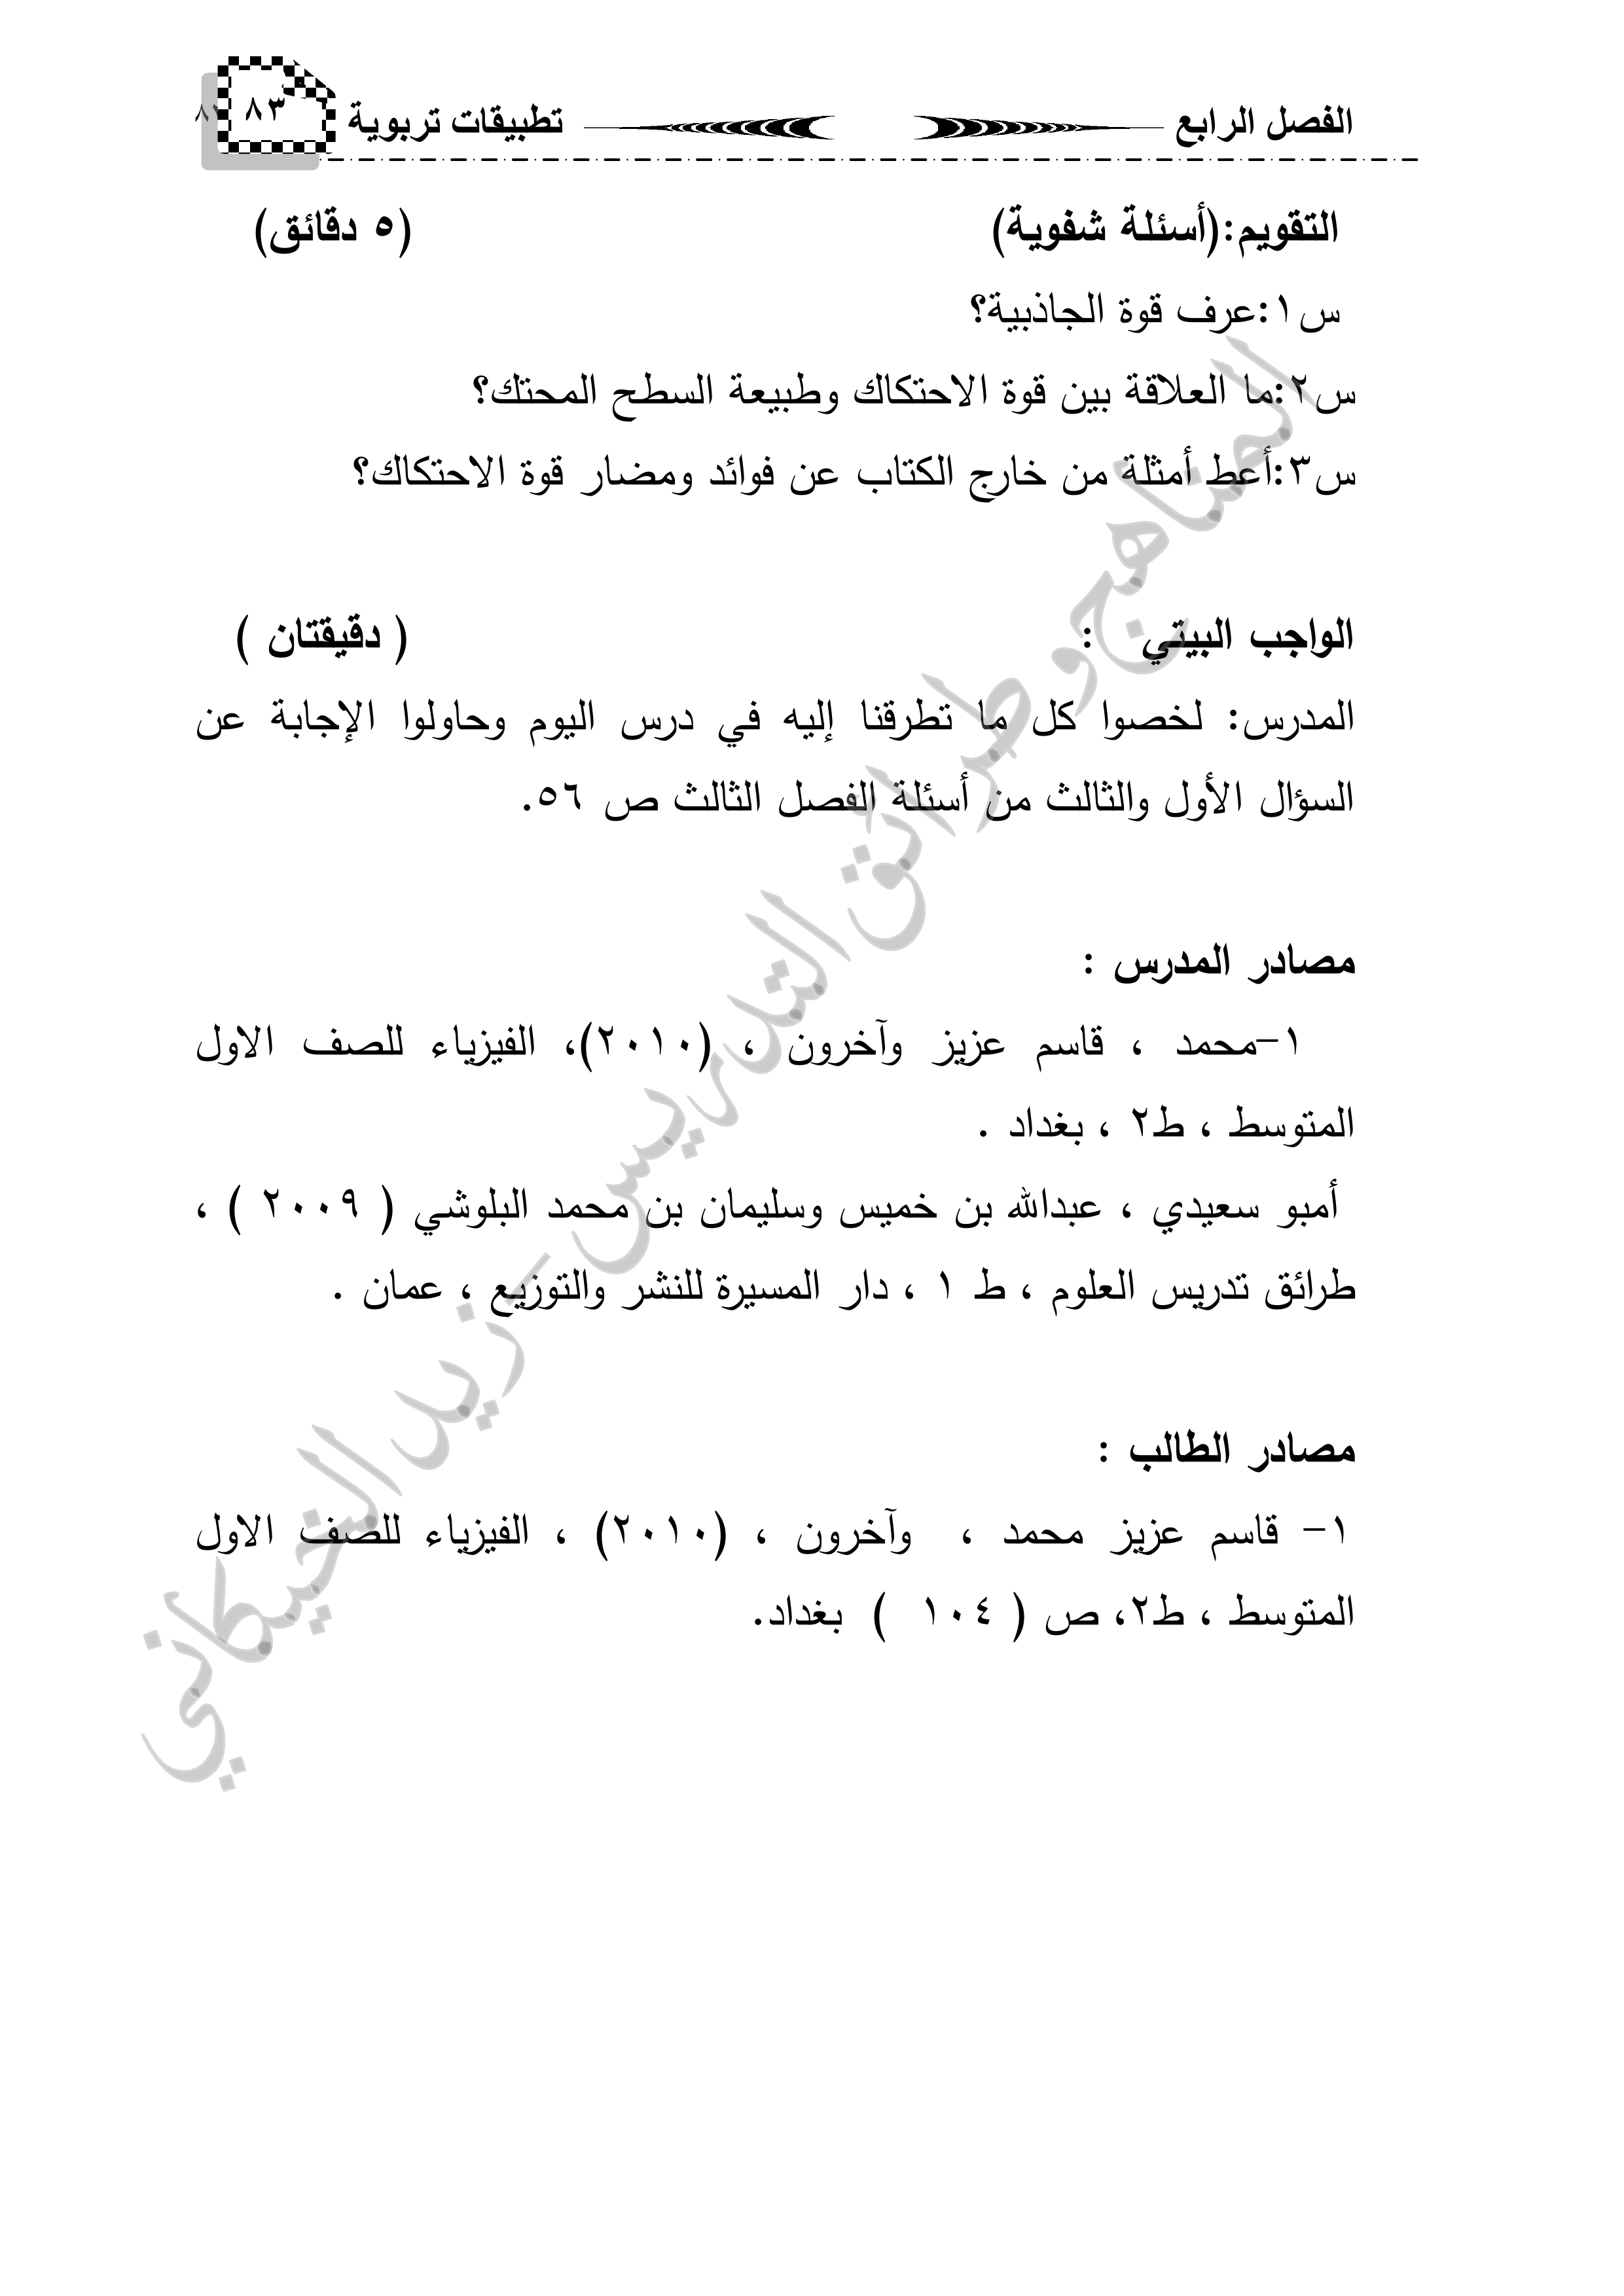 الفصل الرابع تطبيقات تربوية ٨٣
التقويم:(أسئلة شفوية) (٥ دقائق)
س١:عرف قوة الجاذبية؟
س٢:ما العلاقة بين قوة الاحتكاك وطبيعة السطح المحتك؟
س٣:أعط أمثلة من خارج الكتاب عن فوائد ومضار قوة الاحتكاك؟
الواجب البيتي : ( دقيقتان )
المدرس: لخصوا كل ما تطرقنا إليه في درس اليوم وحاولوا الإجابة عن
السؤال الأول والثالث من أسئلة الفصل الثالث ص ٥٦.
مصادر المدرس :
١-محمد ، قاسم عزيز وآخرون ، (٢٠١٠)، الفيزياء للصف الاول
المتوسط ، ط٢ ، بغداد .
أمبو سعيدي ، عبدالله بن خميس وسليمان بن محمد البلوشي ( ٢٠٠٩ ) ،
طرائق تدريس العلوم ، ط ١ ، دار المسيرة للنشر والتوزيع ، عمان .
مصادر الطالب :
١- قاسم عزيز محمد ، وآخرون ، (٢٠١٠) ، الفيزياء للصف الاول
المتوسط ، ط٢، ص ( ١٠٤ ) بغداد.
المناهج وطرائق التدريس - زيد الخيكاني